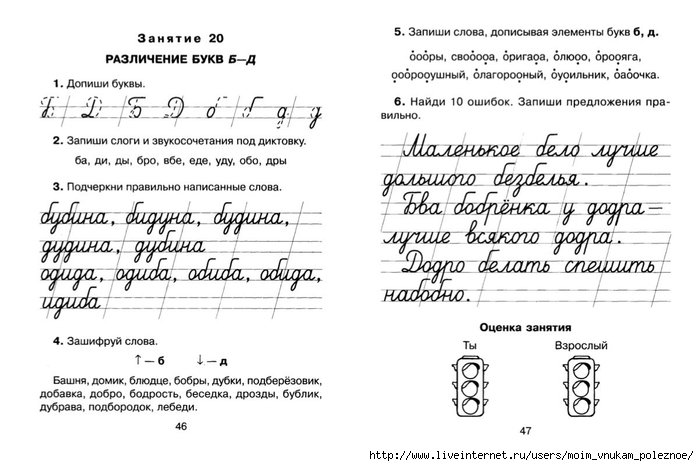 Занятие 20
РАЗЛИЧЕНИЕ БУКВ Б—Д
1. Допиши буквы.
Б Д Б Д б б д д
2. Запиши слоги и звукосочетания под диктовку.
ба, ди, ды, бро, вбе, еде, уду, обо, дры
3. Подчеркни правильно написанные слова.
бубина, бидуна, будина,
дудина, дубина
одида, одиба, обиба, обида,
идиба
4. Зашифруй слова.
↑ — б ↓ — д
Башня, домик, блюдце, бобры, дубки, подберёзовик,
добавка, добро, бодрость, беседка, дрозды, бублик,
дубрава, подбородок, лебеди.
46
5. Запиши слова, дописывая элементы букв б, д.
6. Найди 10 ошибок. Запиши предложения пра-
вильно.
Маленькое бело лучше
дольшого безбелья.
Бва бобрёнка у додра —
лучше всякого додра.
Додро белать спешить
набобно.
Оценка занятия
Ты Взрослый
47
http://www.liveinternet.ru/users/moim_vnukam_poleznoe/